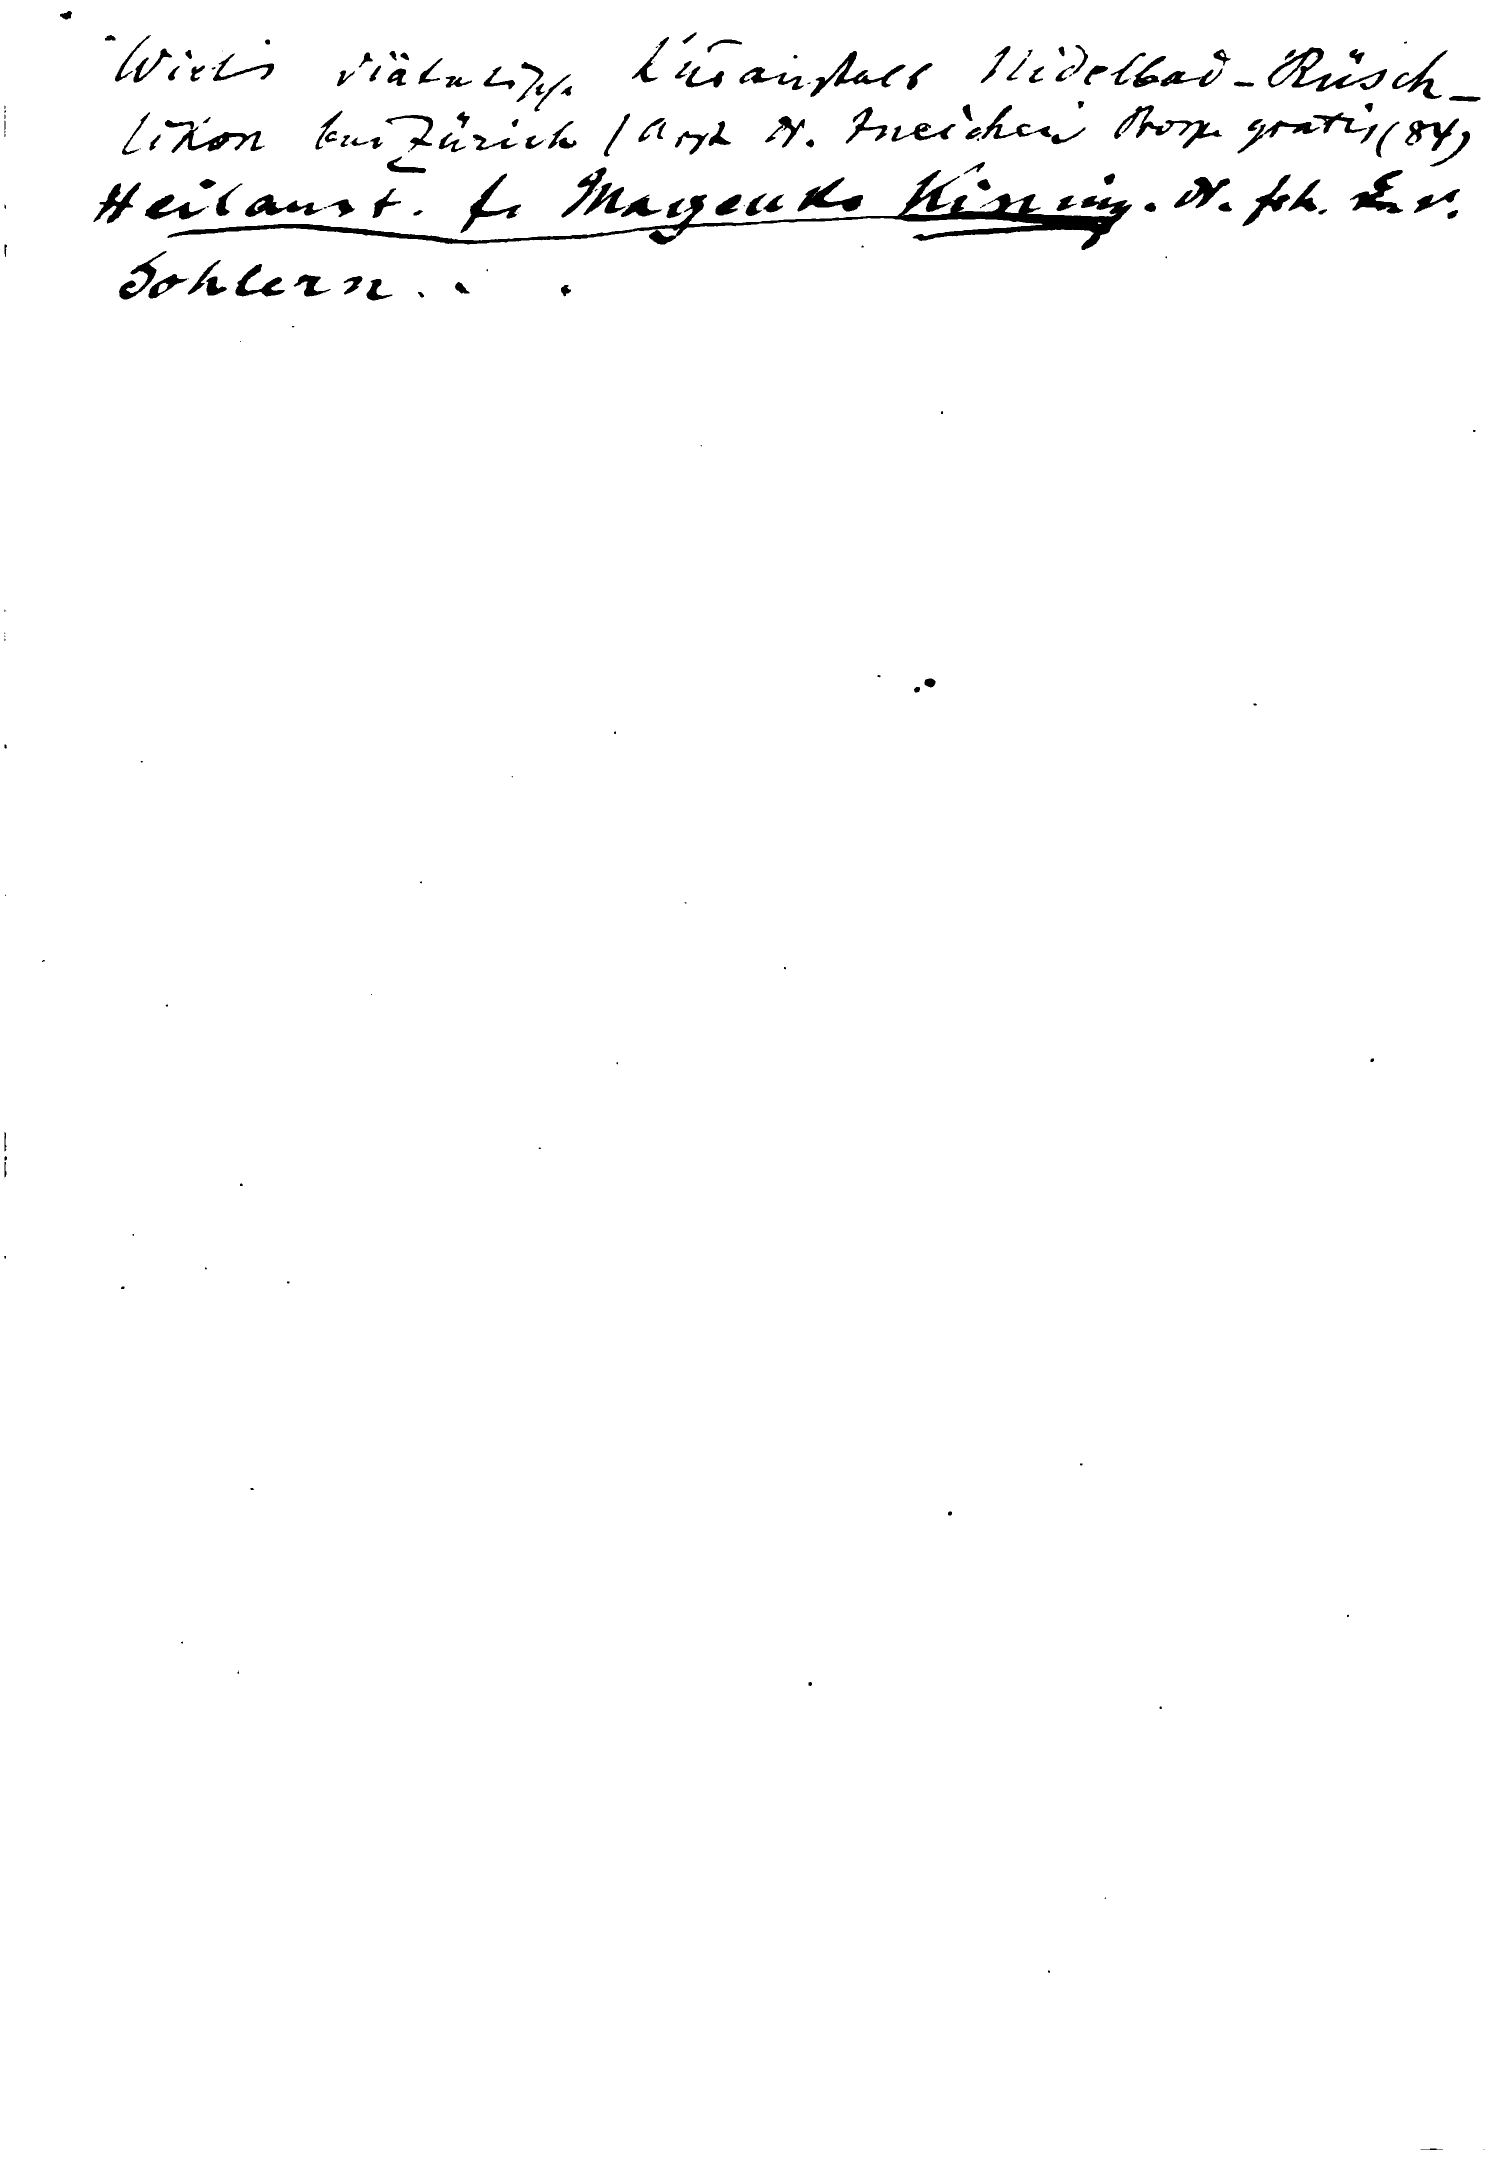 Wiel's diätetische Kuranstalt Nidelbad-Rüsch-
likon bei Zürich / Arzt Dr. Ineichen Prosp. gratis (84)
Heilanst. f. Magenkr. Kissing. Dr. frh. v.
Sohlern.